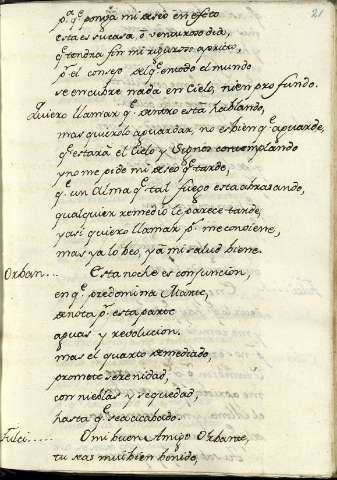 21
pª. qᵉ ponga mi deseo en efeto
esta es su casa, ô venturoso dia,
qᵉ tendra fin mi riguroso aprieto,
pʳ. el consejo del qᵉ en todo el mundo
se encubre nada en Cielo, ni en profundo.
Quiero llamar qᵉ. dentro està hablando,
mas quierolo aguardar, no es bien qᵉ aguarde,
qᵉ estarà el Cielo y Signos contemplando
y no me pide mi deseo qᵉ tarde,
qᵉ un Alma qᵉ tal fuego esta abrasando,
qualquier remedio le parece tarde,
y asi quiero llamar pʳ. me conviene,
mas ya lo beo, yà mi salud biene.
Orban... Esta noche es conjuncion,
en qᵉ predomina Marte,
denota pʳ. esta parte
aguas y revolucion.
mas el quarto demediado,
promete serenidad,
con nieblas y sequedad,
hasta qᵉ sea acabado.
Fulci..... O mi buen Amigo Orbante,
tu seas mui bien benido,